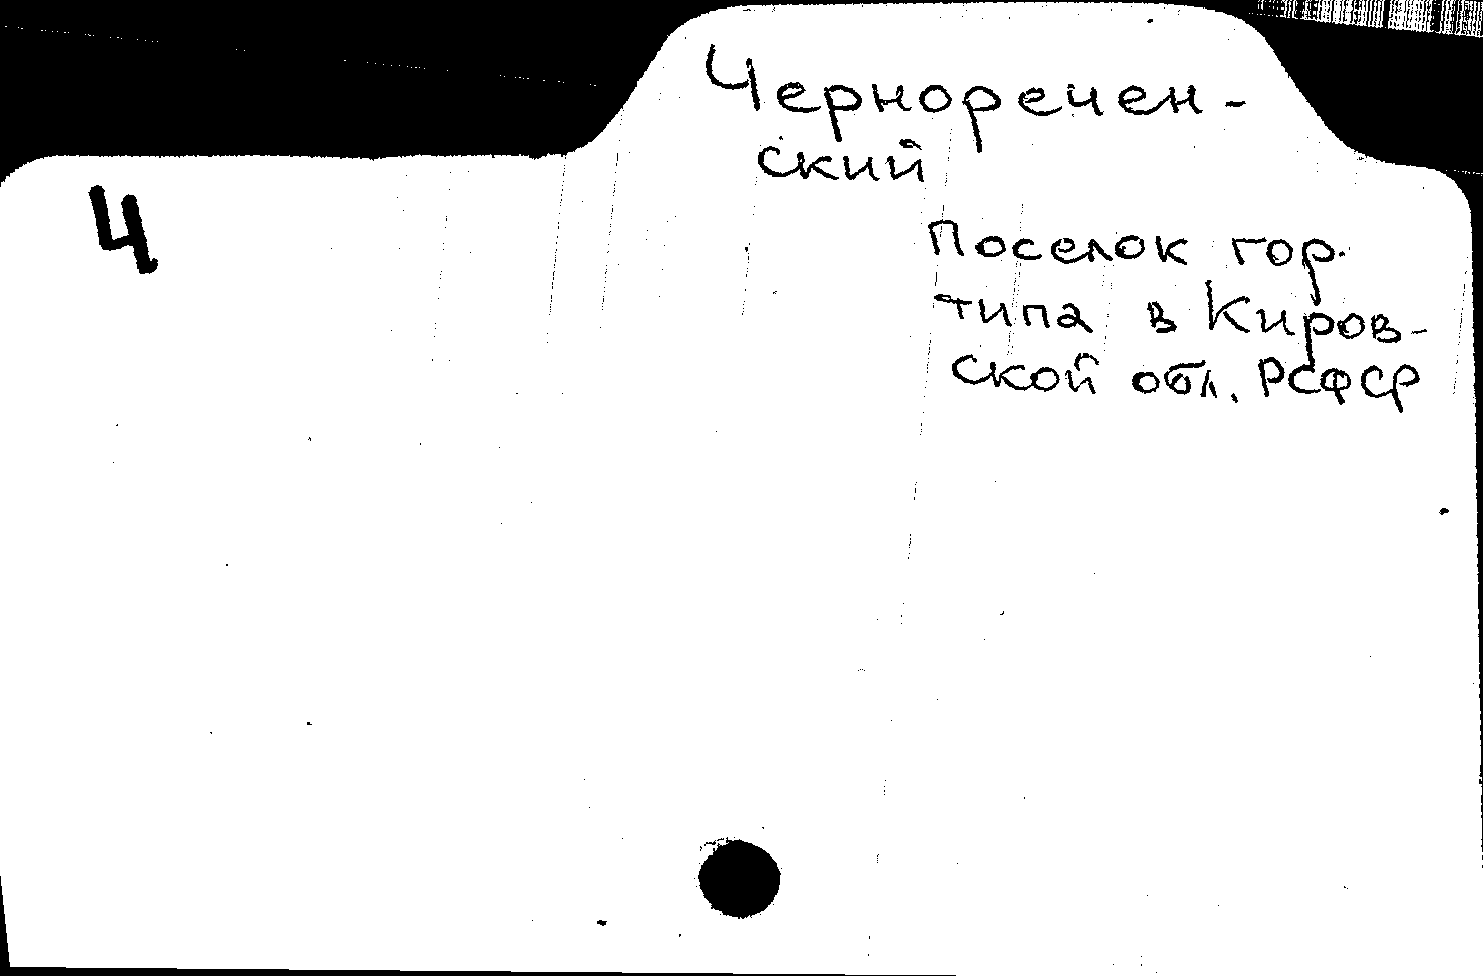 Черноречен-
ский
Ч
Поселок гор.
типа в Киров-
ской обл. РСФСР